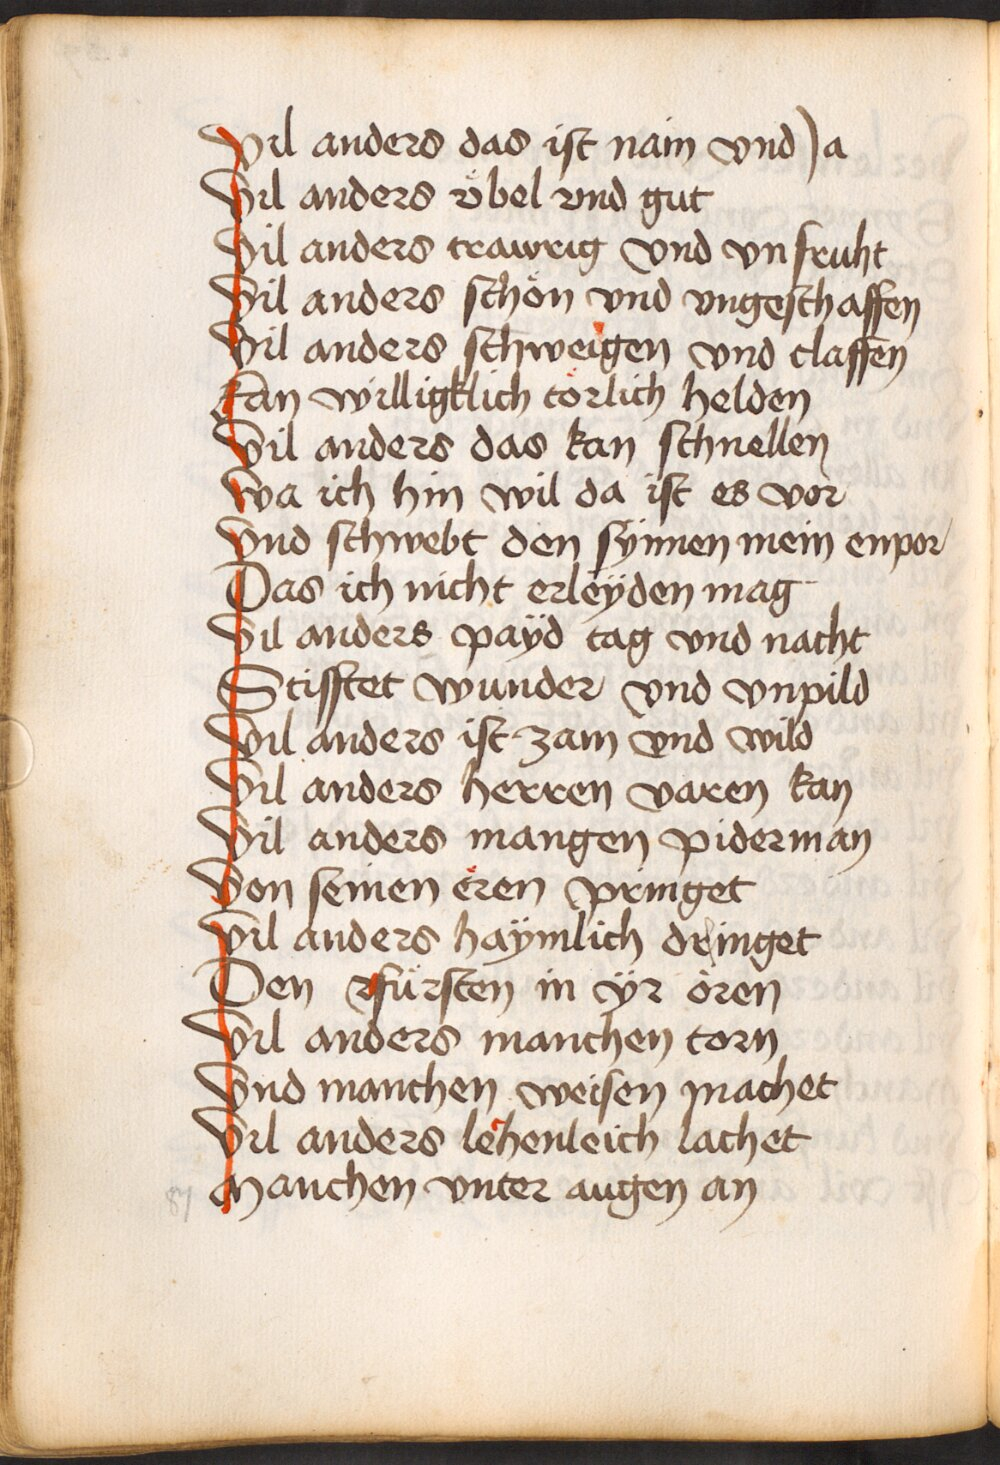 Vil anders das ist nain vnd ja
Vil anders vͤbel vnd gut
Vil anders trawrig vnd vnfruht
Vil anders schön vnd vngeschaffen
Vil anders schweigen vnd claffen
kan willigklich törlich helden
Vil anders das kan schnellen
wa ich hin wil da ist es vor
Vnd schwebt den sÿnnen mein enpor
Das ich nicht erleÿden mag
Vil anders paÿd tag vnd nacht
Stifftet wunder vnd vnpild
Vil anders ist zam vnd wild
Vil anders herren varen kan
Vil anders mangen piderman
Von seinen eren pringet
Vil anders haÿmlich dringet
Den fürsten in ÿr ören
Vil anders manchen torn
Vnd manchen weisen machet
Vil anders lehenleich lachet
Manchen vnter augen an
87